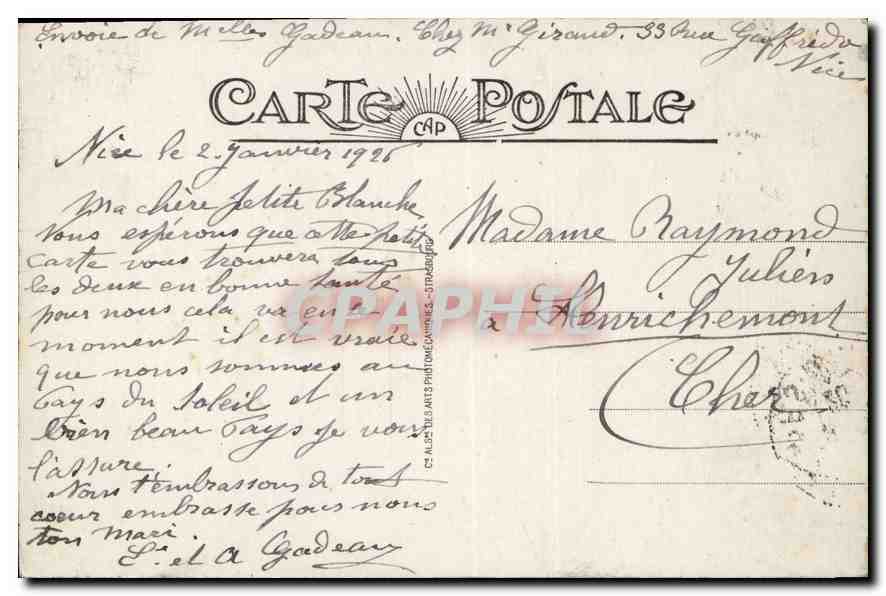 Envoie de Melles Gadeau. Chez Mr Giraud. 33 Rue Gioffrédo
Nice
CARTE POSTALE
CAP
Nice le 2 Janvier 1926
Ma chère petite Blanche
nous espérons que cette petite
carte vous trouvera tous
les deux en bonne santé
pour nous cela va en ce
moment il est vraie
que nous sommes au
Pays du Soleil et un
bien beau Pays je vous
l'assure.
Nous t'embrassons de tout
coeur embrasse pour nous
ton Mari.
L. et A Gadeau
Cie ALSne DES ARTS PHOTOMÉCANIQUES.-STRASBOURG
Madame Raymond
Juliens
à Henrichemont
Cher
CPAPHIL